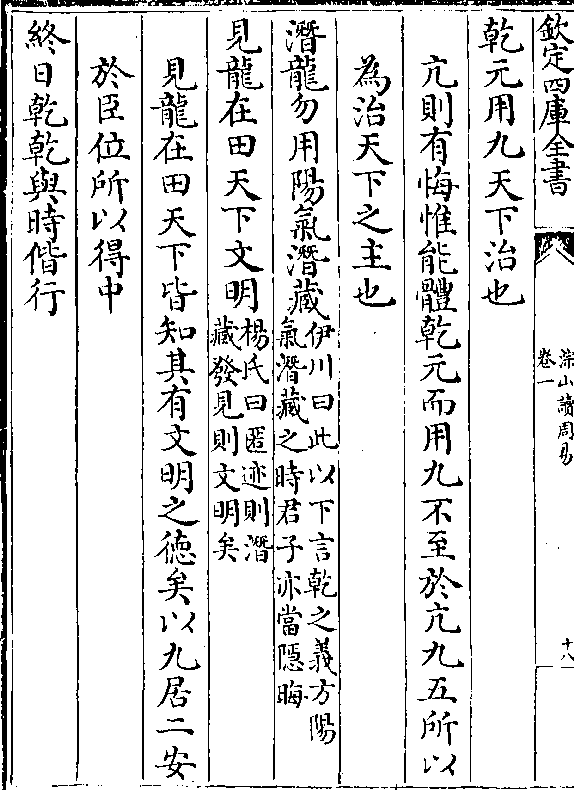 欽定四庫全書
深山讀周易
卷一
十八
乾元用九天下治也
亢則有悔惟能體乾元而用九不至於亢九五所以
為治天下之主也
潛龍勿用陽氣潛藏
伊川曰此以下言乾之義方陽
氣潛藏之時君子亦當隱晦
見龍在田天下文明
楊氏曰匿迹則潛
藏發見則文明矣
見龍在田天下皆知其有文明之德矣以九居二安
於臣位所以得中
終日乾乾與時偕行